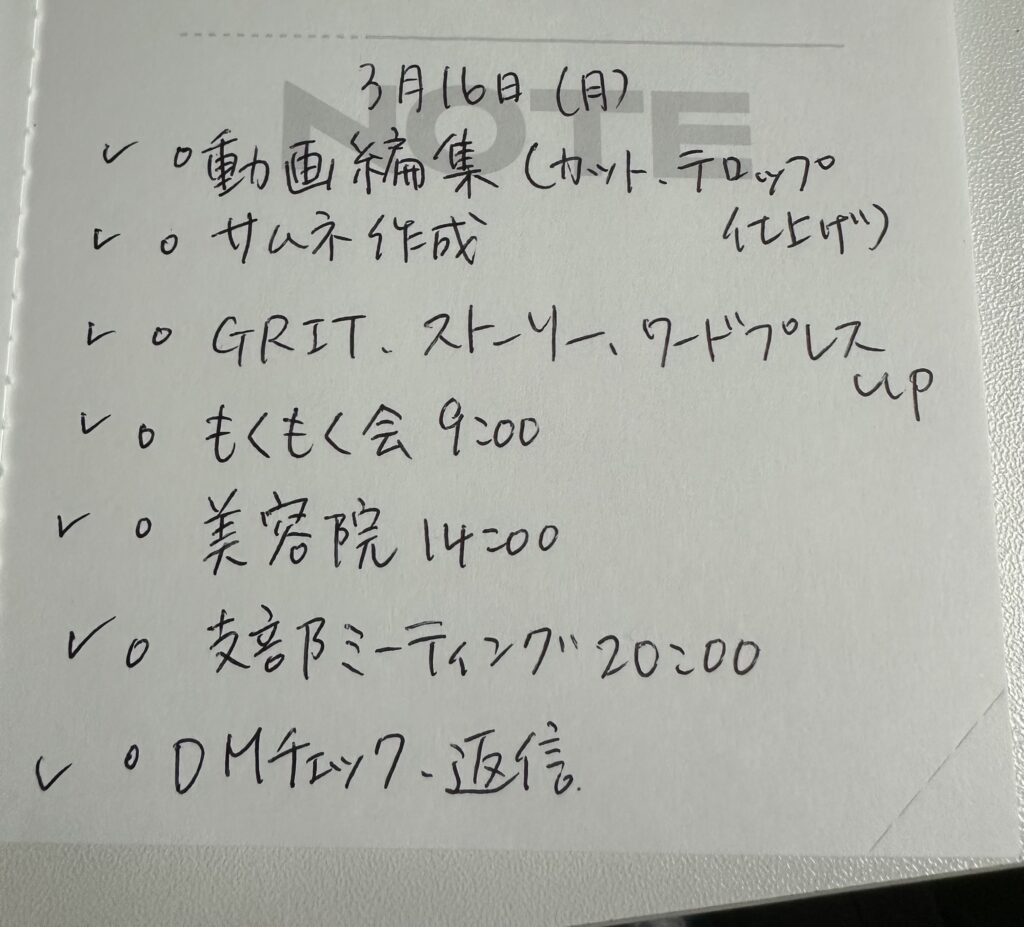 NOTE
3月16日(月)
✓ ○動画編集(カット、テロップ
仕上げ)
✓ ○ サムネ作成
✓ ○ GRIT、ストーリー、ワードプレス
up
✓ ○ もくもく会 9:00
✓ ○ 美容院 14:00
✓ ○ 支部ミーティング 20:00
✓ ○ DMチェック、返信